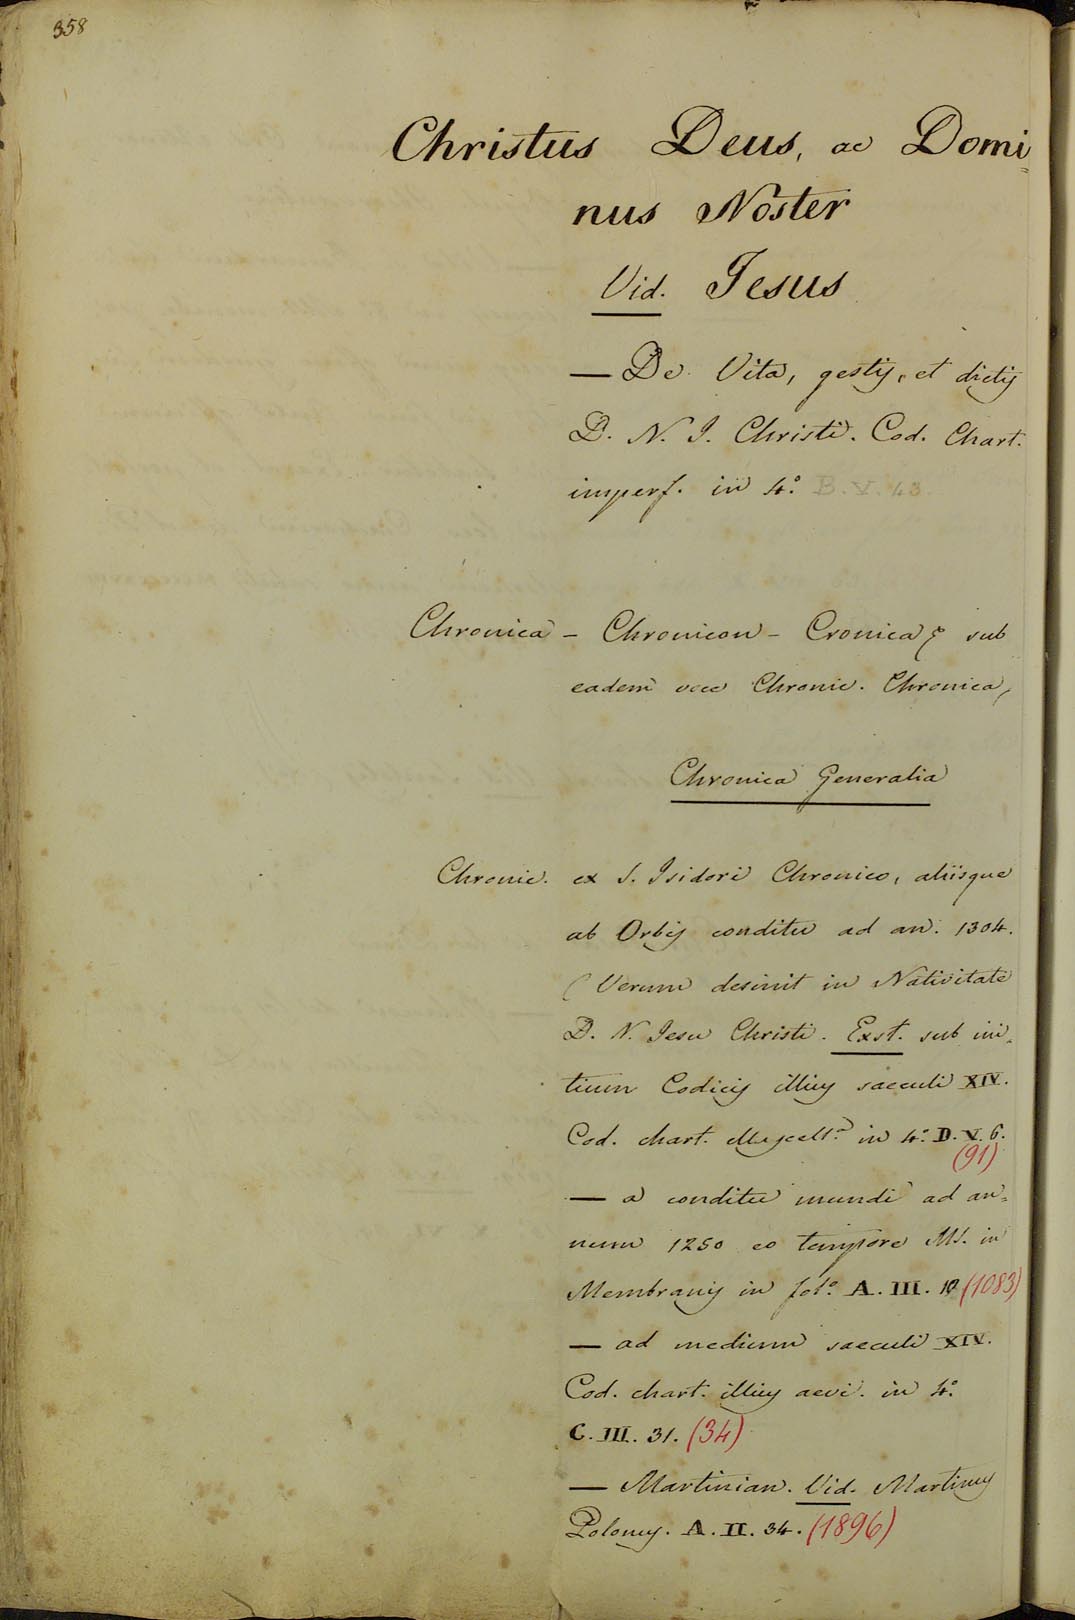 358
Christus Deus, ac Domi=
nus Noster
Vid. Jesus
— De Vita, gestis, et dictis
D. N. J. Christi. Cod. Chart.
imperf. in 4.° B. V. 43.
Chronica - Chronicon - Cronica & sub
eadem voce Chronic. Chronica,
Chronica Generalia
Chronic. ex S. Isidori Chronico, aliisque
ab Orbis conditu ad an. 1304.
( Verum desinit in Nativitate
D. N. Jesu Christi. Exst. sub ini=
tium Codicis illius saeculi XIV.
Cod. chart. Miscell.° in 4.° D. V. 6.
(91)
— a conditu mundi ad an=
num 1250 eo tempore MS. in
Membranis in fol.° A. III. (1083)
— ad medium saeculi XIV.
Cod. chart. illius aevi. in 4.°
C. III. 31. (34)
— Martinian. Vid. Martinus
Polonus. A. II. 34. (1896)